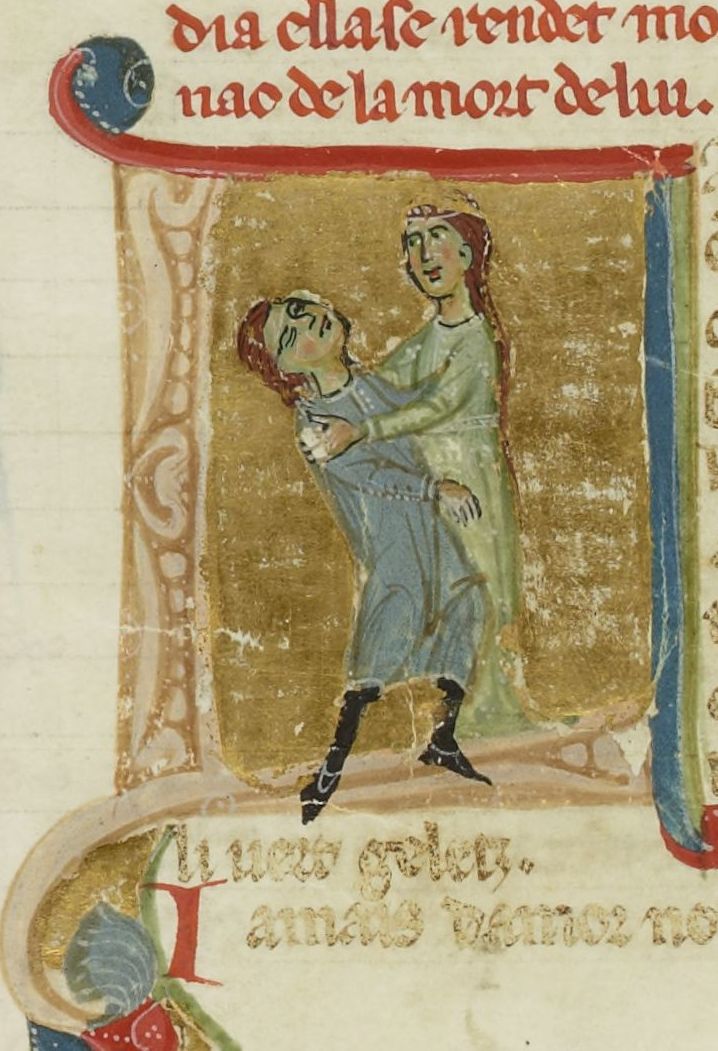 dia ella se rendet mo
nao de la mort de lui.
li uers gelez.
Iamais damor no